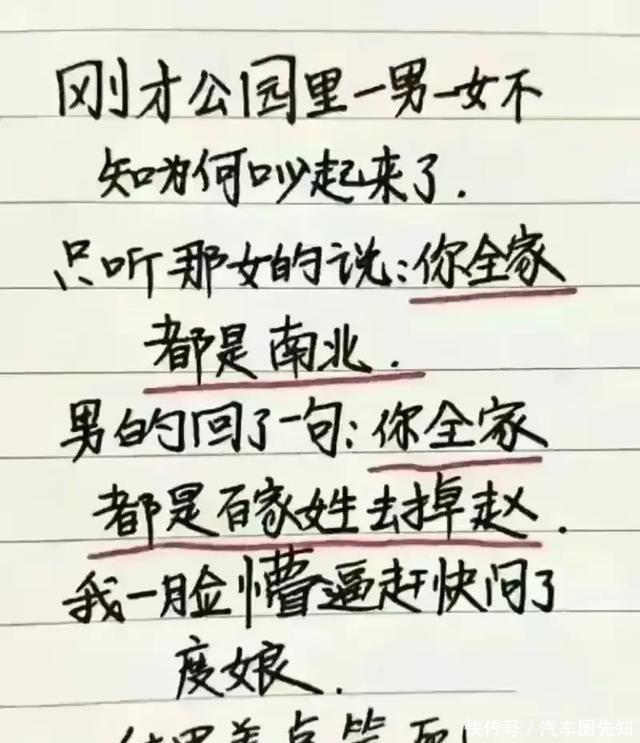 刚才公园里一男一女不
知为何吵起来了.
只听那女的说:你全家
都是南北.
男的回了一句:你全家
都是百家姓去掉赵.
我一脸懵逼赶快问了
度娘.
快传号/汽车圈先知